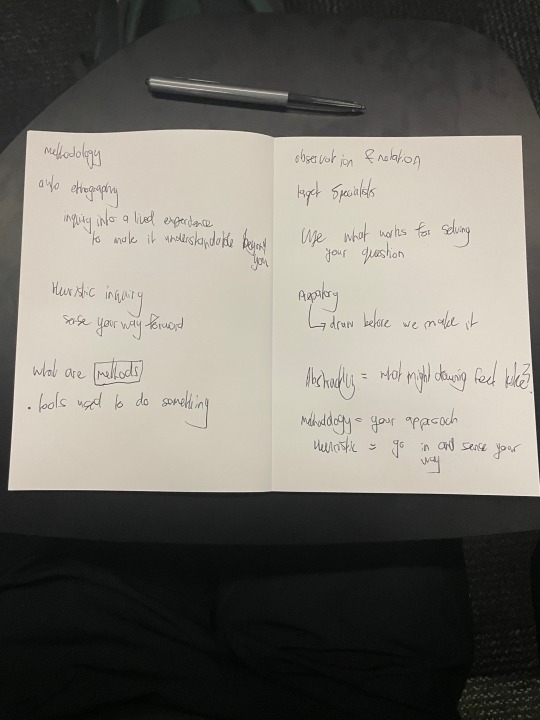 methodology
auto ethnography
inquiry into a lived experience
to make it understandable beyond
you
Heuristic inquiry
sense your way forward
what are methods
• tools used to do something
observation & notation
target Specialists
Use what works for solving
your question
draw before we make it
Abstractly = what might drawing feel like?
methodology = your approach
Heuristic = go in and sense your
way